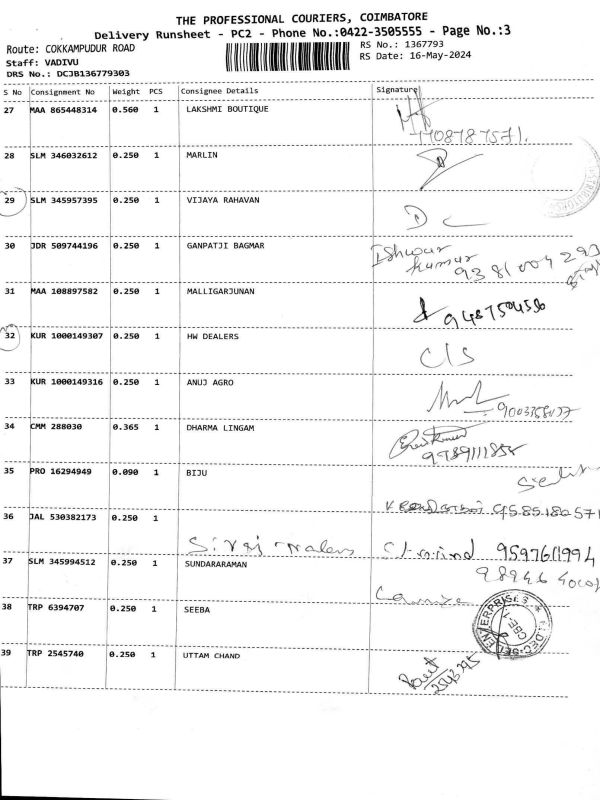 THE PROFESSIONAL COURIERS, COIMBATORE
Delivery Runsheet - PC2 - Phone No.:0422-3505555 - Page No.:3
Route: COKKAMPUDUR ROAD
RS No.: 1367793
Staff: VADIVU
RS Date: 16-May-2024
DRS No.: DCJB136779303
S No Consignment No Weight PCS Consignee Details Signature
27 MAA 865448314 0.560 1 LAKSHMI BOUTIQUE
28 SLM 346032612 0.250 1 MARLIN
29 SLM 345957395 0.250 1 VIJAYA RAHAVAN
D C
30 JDR 509744196 0.250 1 GANPATJI BAGMAR
Ishwar
kumar
31 MAA 108897582 0.250 1 MALLIGARJUNAN
9487504556
32 KUR 1000149307 0.250 1 HW DEALERS
C/S
33 KUR 1000149316 0.250 1 ANUJ AGRO
34 CMM 288030 0.365 1 DHARMA LINGAM
35 PRO 16294949 0.090 1 BIJU
36 JAL 530382173 0.250 1
37 SLM 345994512 0.250 1 SUNDARARAMAN
38 TRP 6394707 0.250 1 SEEBA
39 TRP 2545740 0.250 1 UTTAM CHAND